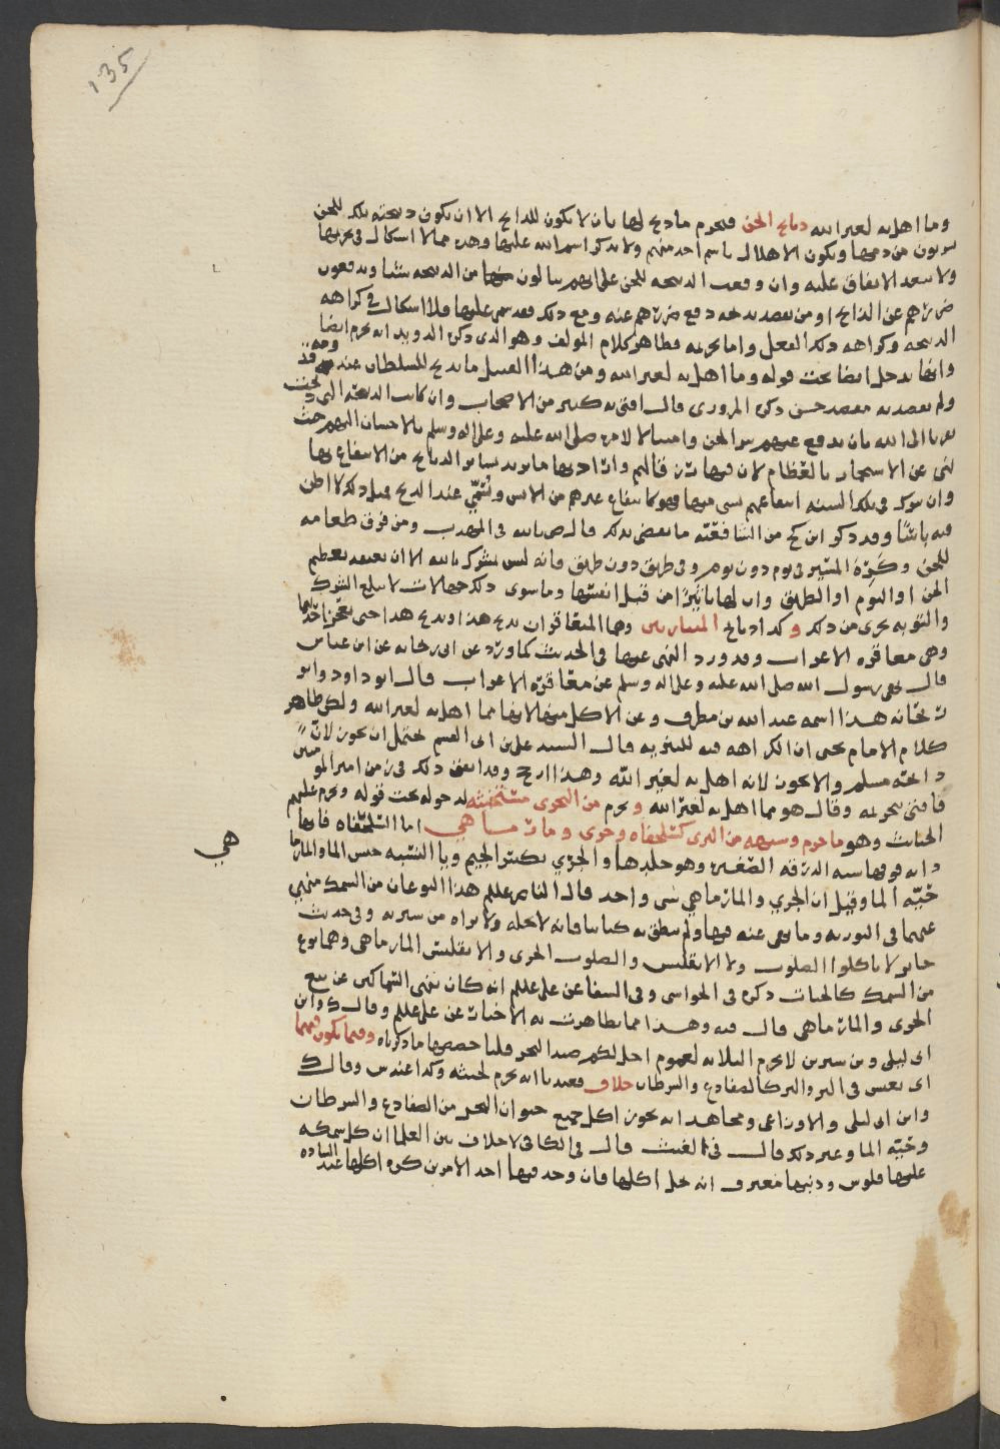 135
وما اهل به لغير الله ذبايح الجن فيحرم ما ذبح لها بان لا يكون للذابح الا ان يكون ذبيحته تلك للجن
من دمها ويكون الاهلال باسم احد منهم ولا يذكر اسم الله عليها وهذه مما لا اشكال في تحريمها
ولا يبعد الاتفاق عليه وان وقعت الذبيحة للجن على انهم ينالون منها من الذبيحه شيئا ويدفعون
ضررهم عن الذابح او من يقصد بذبحه دفع ضررهم عنه ومع ذلك فقد سمى عليها فلا اشكال في كراهة
الذبيحه وكراهه ذلك الفعل واما تحريمه فظاهر كلام المولف وهو الذي ذكره الدويد انه يحرم ايضا
وانها تدخل ايضا تحت قوله وما اهل به لغير الله ومن هذا القبيل ما يذبح للسلطان عند
ولم يقصد به مقصد حسن ذكره المروزي قال افتى به كثير من الاصحاب وان كانت الذبيحة التي ذبحت
تقربا الى الله بان يدفع عنهم شر الجن وامتثالا لامره صلى الله عليه وعلى اله وسلم بالاحسان اليهم حيث
نهى عن الاستجمار بالعظام لان فيها رزقا لهم وان اذنها ما يريد سائر الذبايح من الانتفاع بها
وان شورك في تلك السنه انتفاعهم بشي منها فهو كانتفاع غيرهم من الانس وسمي عند الذبح فمثل ذلك لا اظن
فيه باسا وقد ذكر ابن كج من الشافعية ما يقضي بذلك قال ص بالله في المهذب ومن فرق طعامه
للجن وكره المسير في يوم دون يوم وفي طريق دون طريق فانه ليس بشرك بالله الا ان يعتقد تعظيم
الجن او اليوم او الطريق وان لها تاثيرا من قبل انفسها وما سوى ذلك جهالات لا تبلغ الشرك
والتوبه تجزى من ذلك وكذا ذبايح المتباريين وهما المتعاقران يذبح هذا ويذبح هذا حتى يعجز احدهما
وهي معاقرة الاعراب وقد ورد النهي عنها في الحديث كما ورد عن ابي ريحانه عن ابن عباس
قال نهى رسول الله صلى الله عليه وعلى اله وسلم عن معاقرة الاعراب قال ابو داود وابو
ريحانه هذا اسمه عبد الله بن مطر وعن الاكل منها لانها مما اهل به لغير الله ولكن ظاهر
كلام الامام يحيى ان الكراهه فيه للتنزيه قال السيد علي بن ابي القسم يحتمل ان يجوز لان
ذابحه مسلم والا يجوز لانه اهل به لغير الله وهذا ارجح وقد اتفق ذلك في زمن امير المومنين
فافتى بتحريمه وقال هو مما اهل به لغير الله ويحرم من البحري مستخبثه لدخوله تحت قوله ويحرم عليهم
الخبائث وهو ما حرم وشبهه من البري كسلحفاه وجري ومارماهي اما السلحفاه فانها
دابه فوقها شبه الدرقه الصغيره وهو جلدها والجري بكسر الجيم ويا النسبه جنس الما والمارماهي
هي
حيه الما وقيل ان الجري والمارماهي شي واحد قال الناصر عليلم هذا النوعان من السمك منهي
عنهما في التوريه وما نهي عنه فيها ولم ينطق به كتابنا فانه لا يحله ولا نراه من سيرته وفي حديث
جابر لا تاكلوا الصلور ولا الانقليس والصلور الجري والانقليس المارماهي وهما نوع
من السمك كالحيات ذكره في الحواشي وفي الشفا عن علي عليلم انه كان ينهى السماكين عن بيع
الجري والمارماهي قال فيه وهذا مما تظاهرت به الاخبار عن علي عليلم وقال ك وابن
ابي ليلى وش وابن سيرين لا تحرم الثلاثه لعموم احل لكم صيد البحر قلنا خصصها ما ذكرناه وفيما يكون فيهما
اي يعيش في البر والبحر كالضفادع والسرطان خلاف فعندنا انه يحرم لخبثه وكذا عند ش وقال ك
وابن ابي ليلى والاوزاعي ومجاهد انه يجوز اكل جميع حيوان البحر من الضفادع والسرطان
وحيه الما وغير ذلك قال في الغيث قال في الكافي لا خلاف بين العلما ان كل سمكه
عليها فلوس وذنبها مفترق انه يحل اكلها فان وجد فيها احد الامرين كره اكلها عند الساده